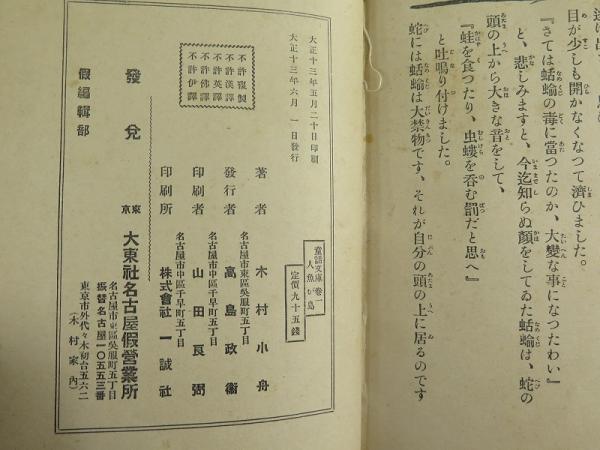 目が少しも開かなくなつて濟ひました。
『さては蛞蝓の毒に當つたのか、大變な事になつたわい』
と、悲しみますと、今迄知らぬ顏をしてゐた蛞蝓は、蛇の
頭の上から大きな音をして、
『蛙を食つたり、虫螻を呑む罰だと思へ』
と吐鳴り付けました。
蛇には蛞蝓は大禁物です、それが自分の頭の上に居るのです
大正十三年五月二十日印刷
大正十三年六月一日發行
不許複製
不許漢譯
不許英譯
不許佛譯
不許伊譯
童話文庫卷一
人魚が島
定價九十五錢
著者 木村小舟
名古屋市東區吳服町五丁目
發行者 高島政衞
名古屋市中區千早町五丁目
印刷者 山田良弼
名古屋市中區千早町五丁目
印刷所 株式會社一誠社
發兌 東京 大東社名古屋假營業所
名古屋市東區吳服町五丁目
振替名古屋一〇五五三番
假編輯部 東京市外代々木初台五六二
(木村家內)